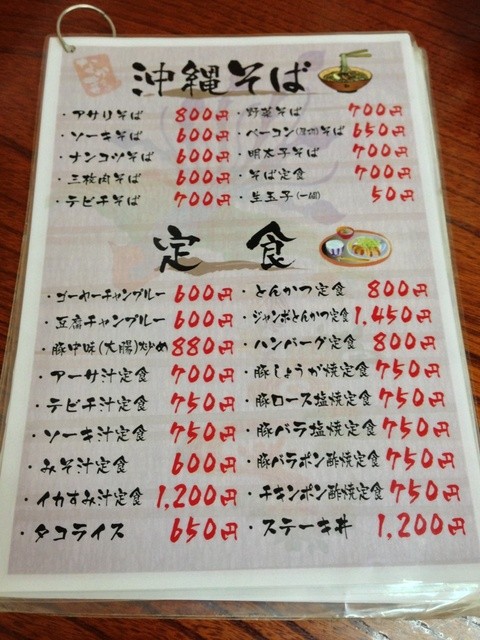 沖縄そば
・アサリそば 800円
・ソーキそば 600円
・ナンコツそば 600円
・三枚肉そば 600円
・テビチそば 700円
・野菜そば 700円
・ベーコン(厚切)そば 650円
・明太子そば 700円
・そば定食 700円
・生玉子(一個) 50円
定食
・ゴーヤーチャンプルー 600円
・豆腐チャンプルー 600円
・豚中味(大腸)炒め 880円
・アーサ汁定食 700円
・テビチ汁定食 750円
・ソーキ汁定食 750円
・みそ汁定食 600円
・イカすみ汁定食 1,200円
・タコライス 650円
・とんかつ定食 800円
・ジャンボとんかつ定食 1,450円
・ハンバーグ定食 800円
・豚しょうが焼定食 750円
・豚ロース塩焼定食 750円
・豚バラ塩焼定食 750円
・豚バラポン酢焼定食 750円
・チキンポン酢焼定食 750円
・ステーキ丼 1,200円